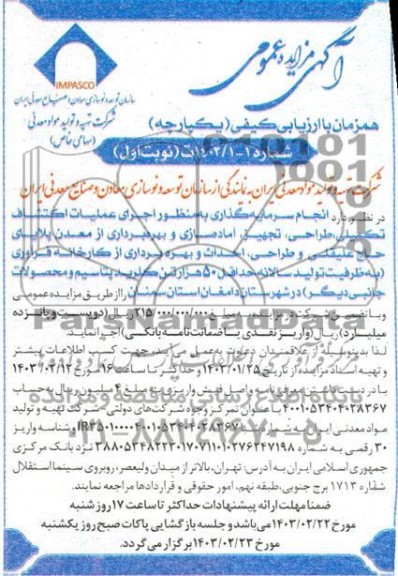 آگهی مزایده عمومی
IMPASCO
سازمان توسعه و نوسازی معادن و صنایع معدنی ایران
شرکت تهیه و تولید مواد معدنی
(سهامی خاص)
همزمان با ارزیابی کیفی (یکپارچه)
شماره ۱-۱۴۰۳/۱ت (نوبت اول)
شرکت تهیه و تولید مواد معدنی ایران به نمایندگی از سازمان توسعه و نوسازی معادن و صنایع معدنی ایران
در نظر دارد انجام سرمایه‌گذاری به منظور اجرای عملیات اکتشاف
تکمیلی، طراحی، تجهیز، آماده‌سازی و بهره‌برداری از معدن پلایای
حاج علیقلی و طراحی، احداث و بهره برداری از کارخانه فرآوری
(به ظرفیت تولید سالانه حداقل ۵۰ هزار تن کلرید پتاسیم و محصولات
جانبی دیگر) در شهرستان دامغان استان سمنان را از طریق مزایده عمومی
و با تضمین شرکت در مزایده به مبلغ ۲۱۵/۰۰۰/۰۰۰/۰۰۰ ریال (دویست و پانزده
میلیارد) ریال (واریز نقدی یا ضمانت‌نامه بانکی) اجرا نماید.
لذا بدینوسیله از علاقمندان دعوت بعمل می‌آید جهت کسب اطلاعات بیشتر
و تهیه اسناد مزایده از تاریخ ۱۴۰۳/۰۱/۲۵ و حداکثر تا ساعت ۱۶ مورخ ۱۴۰۳/۰۲/۱۲
با در دست داشتن معرفی نامه و اصل فیش واریزی به مبلغ ۴ میلیون ریال به حساب
۴۰۰۱۰۵۳۴۰۴۰۲۸۳۶۷ با عنوان تمرکز وجوه شرکت‌های دولتی - شرکت تهیه و تولید
مواد معدنی ایران به شماره شبا و شناسه واریز
۳۰ رقمی به شماره نزد بانک مرکزی
جمهوری اسلامی ایران به آدرس: تهران، بالاتر از میدان ولیعصر، روبروی سینما استقلال
شماره ۱۷۱۳ برج جنوبی، طبقه نهم، امور حقوقی و قراردادها مراجعه نمایند.
ضمنا مهلت ارائه پیشنهادات حداکثر تا ساعت ۱۷ روز شنبه
مورخ ۱۴۰۳/۰۲/۲۲ می‌باشد و جلسه بازگشایی پاکات صبح روز یکشنبه
مورخ ۱۴۰۳/۰۲/۲۳ برگزار می‌گردد.
ParsNamadData
پایگاه اطلاع رسانی مناقصه و مزایده
۰۲۱-۸۸۳۴۹۶۷۰-۵